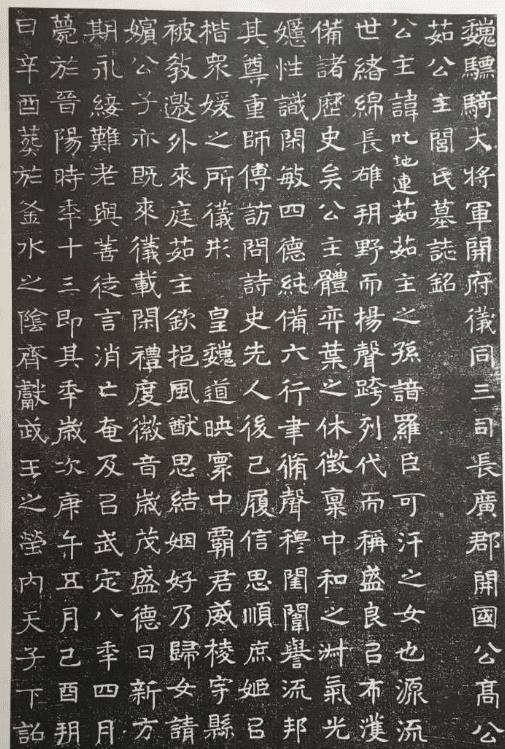 魏驃騎大將軍開府儀同三司長廣郡開國公高公
茹公主閭氏墓誌銘
公主諱叱地連茹茹主之孫諳羅臣可汗之女也源流
世緒綿長雄朔野而揚聲跨列代而稱盛良㠯布濩
備諸歷史矣公主體弈葉之休徵稟中和之淑氣光
嬺性識閑敏四德純備六行聿脩聲穆閨闈譽流邦
其尊重師傅訪問詩史先人後己履信思順庶姬㠯
楷衆媛之所儀形 皇魏道映寰中霸君威棱宇縣
被敎邀外來庭茹主欽挹風猷思結姻好乃歸女請
嬪公子亦既來儀載閑禮度徽音歲茂盛德日新方
期永綏難老與善徒言消亡奄及㠯武定八年四月
薨於晉陽時年十三即其年歲次庚午五月己酉朔
日辛酉葬於釜水之陰齊獻武王之塋內天子下詔